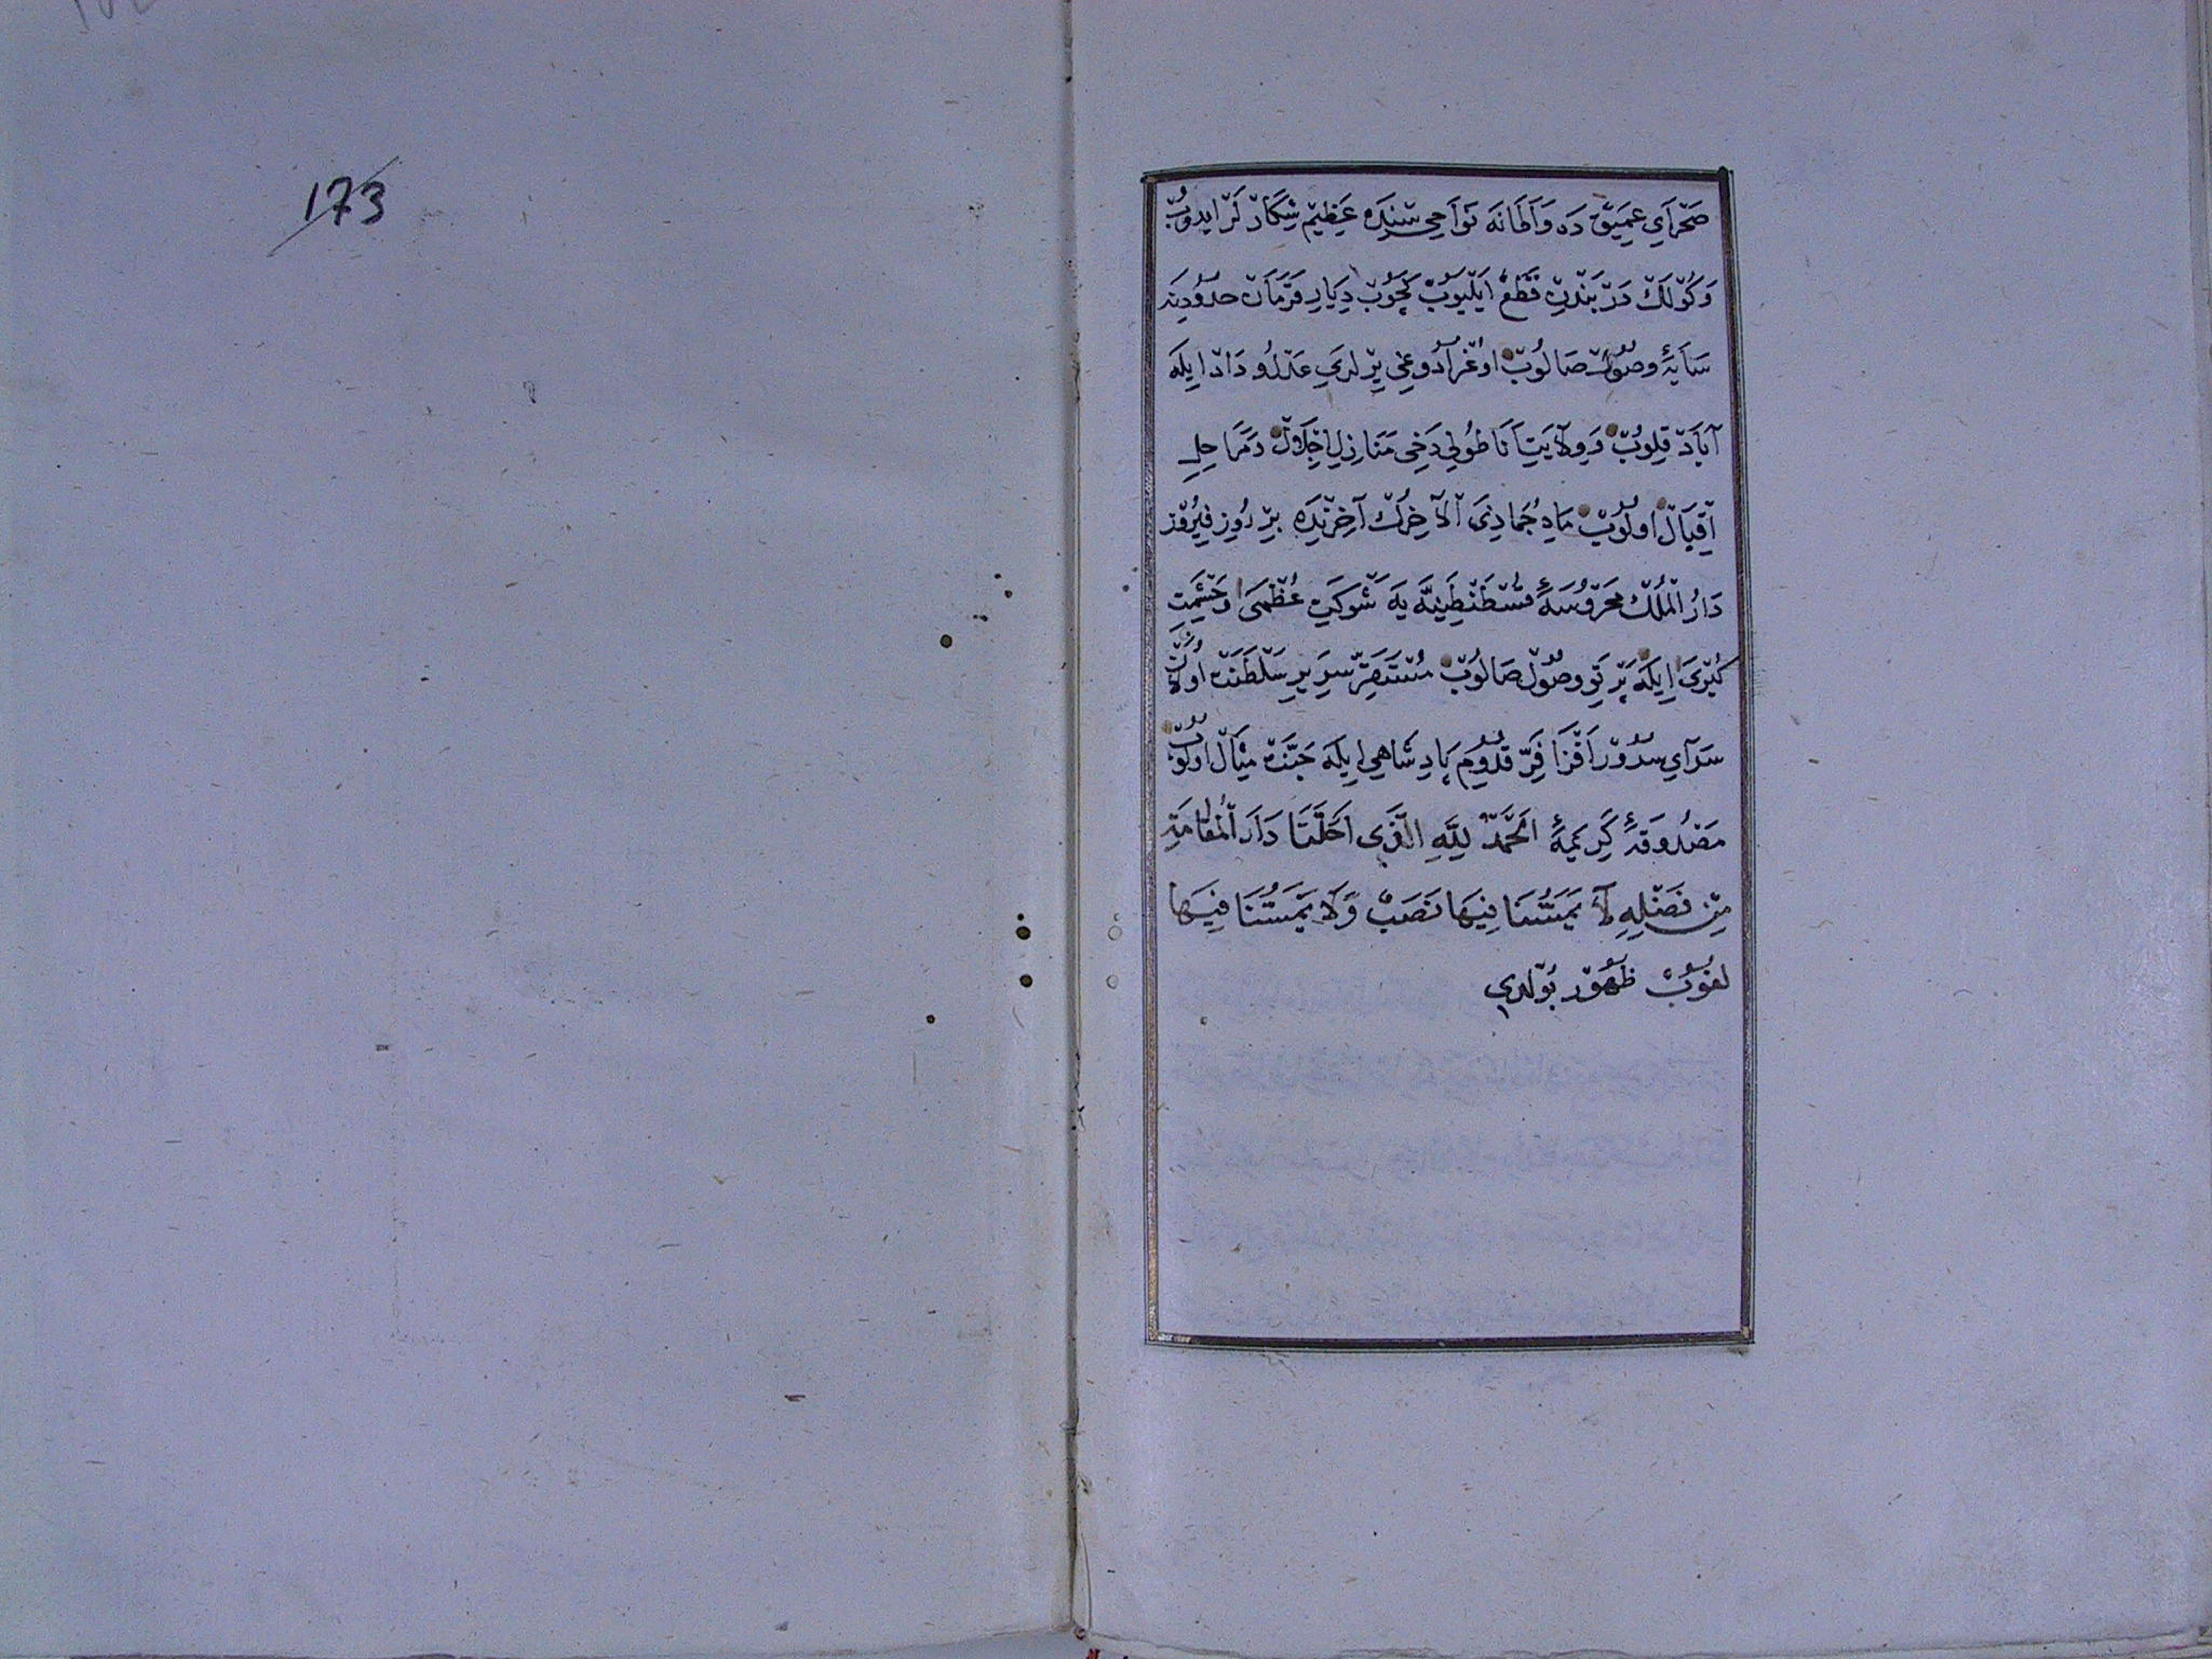 صَحْرَايِ عَمِيقْ دَه وَاَطَانَه نَوَاحِي سِنْدَه عَظِيمْ شِكَارْ لَرْ ايدُوبْ
وَكُولَكْ دَرْبَنْدِنْ قَطْعْ ايلَيُوبْ كَچُوبْ دِيَارِ قَرَمَانْ حدُودِينَه
سَايَهٔ وصُولْ صَالُوبْ اوُغْرَادُوغِي يِرْلَرِي عَدْلُو دَادْ ايلَه
آبَادْ قِلُوبْ وَوِلَايَتِ آنَاطُولِي دَخِي مَنَازِلِ اِجْلَالْ وَمَرَاحِلِ
اِقْبَالْ اولُوبْ مَاهِ جُمَادَيَ الآخِرُكْ آخِرِنْدَه بِرْ رُوزِ فِيرُوزْ
دَارُ الْمُلْكْ مَحْرُوسَهٔ قُسْطَنْطِينِيَّه يَه شَوْكَتِ عُظْمَى وَحِشْمَتِ
كُبْرَى ايلَه پَرْتَوِ وصُولْ صَالُوبْ مُسْتَقَرِّ سَرِيرِ سَلْطَنَتْ اولَانْ
سَرَايِ سُرُورْ اَفْزَا فَرِّ قُدُومِ پَادِشَاهِي ايلَه جَنَّتْ مِثَالْ اولُوبْ
مَصْدُوقَهٔ كَرِيمَهٔ اَلْحَمْدُ لِلَّهِ الَّذِي اَحَلَّنَا دَارَ الْمُقَامَةِ
مِنْ فَضْلِهِ لَا يَمَسُّنَا فِيهَا نَصَبٌ وَلَا يَمَسُّنَا فِيهَا
لغُوبٌ ظُهُورْ بُولدِي
173